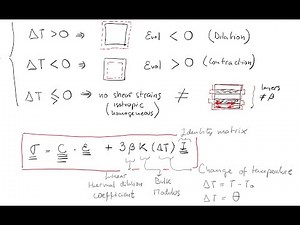 ΔT > 0 ⇒ Evol < 0 (Dilation)
ΔT < 0 ⇒ Evol > 0 (Contraction)
ΔT ≤ 0 ⇒ no shear strains ≠ layers
isotropic ≠ β
(homogeneous)
Identity matrix
σ = C : ε + 3βK(ΔT) I
Linear thermal dilation coefficient
Bulk Modulus
Change of temperature
ΔT = T - T₀
ΔT = θ